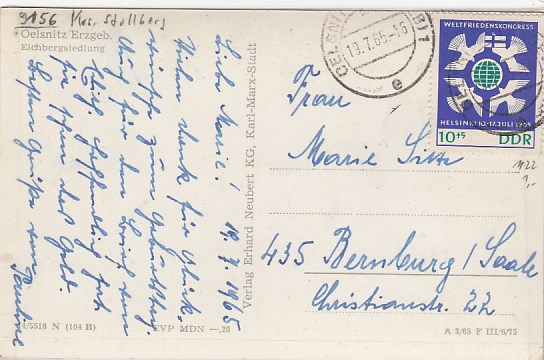 9156 Krs. Stollberg
Oelsnitz Erzgeb.
Eichbergsiedlung
Liebe Marie! 19.7.1965
Vielen Dank für Glück-
wünsche zum Geburtstag.
Auch für den Brief von
Hoffentlich
sie schon das Geld.
Besten Grüße von
Pauline
4/5518 N (104 B)
EVP MDN —,20
Verlag Erhard Neubert KG, Karl-Marx-Stadt
OELSNITZ
19.7.65-16
e
WELTFRIEDENSKONGRESS
HELSINKI 10.-17. JULI 1965
10+5 DDR
M22
1,-
Frau
Marie Sitte
435 Bernburg/Saale
Christianstr. 22
A 3/65 F III/6/75